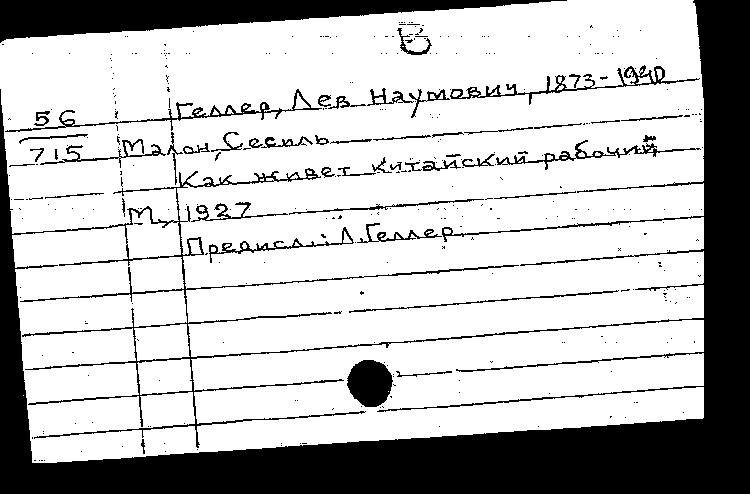 В
Геллер, Лев Наумович, 1873-1940
56
715
Малон, Сесиль
Как живет китайский рабочий
М., 1927
Предисл.: Л.Геллер